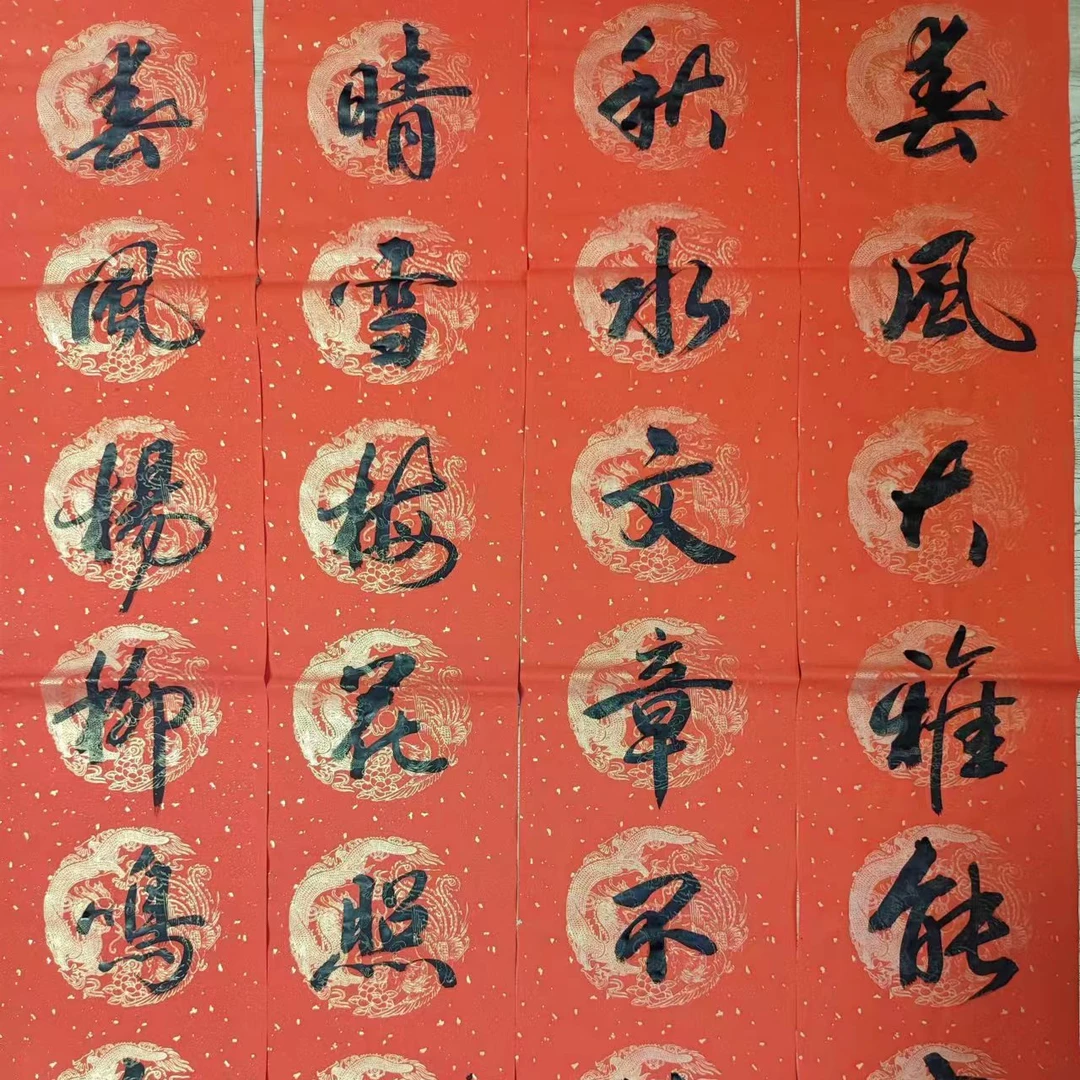 春風大雅能
秋水文章不
晴雪梅花照
春風楊柳鳴